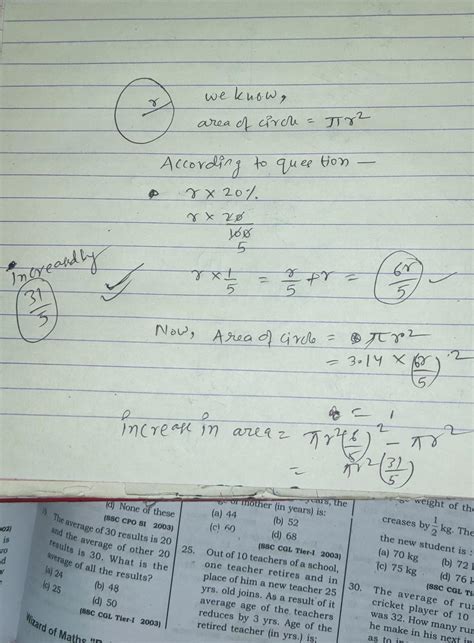 r
we know,
area of circle = πr²
According to question —
r × 20%
r × 20
100
5
Increased by
31
5
r × 1/5 = r/5 + r = 6r/5
Now, Area of circle = πr²
= 3.14 × (6r/5)²
Increase in area = πr²(6/5)² - πr²
= πr²(31/5)
(d) None of these
(SSC CPO SI 2003)
The average of 30 results is 20
and the average of other 20
results is 30. What is the
average of all the results?
(a) 24
(b) 48
(c) 25
(d) 50
(SSC CGL Tier-I 2003)
Wizard of Maths
of mother (in years) is:
(a) 44
(b) 52
(c) 60
(d) 68
(SSC CGL Tier-I 2003)
25. Out of 10 teachers of a school,
one teacher retires and in
place of him a new teacher 25
yrs. old joins. As a result of it
average age of the teachers
reduces by 3 yrs. Age of the
retired teacher (in yrs.) is:
weight of the
creases by 1/2 kg. The
the new student is :
(a) 70 kg
(b) 72
(c) 75 kg
(d) 76
(SSC CGL
30. The average of
cricket player of 10
was 32. How many
he make in his